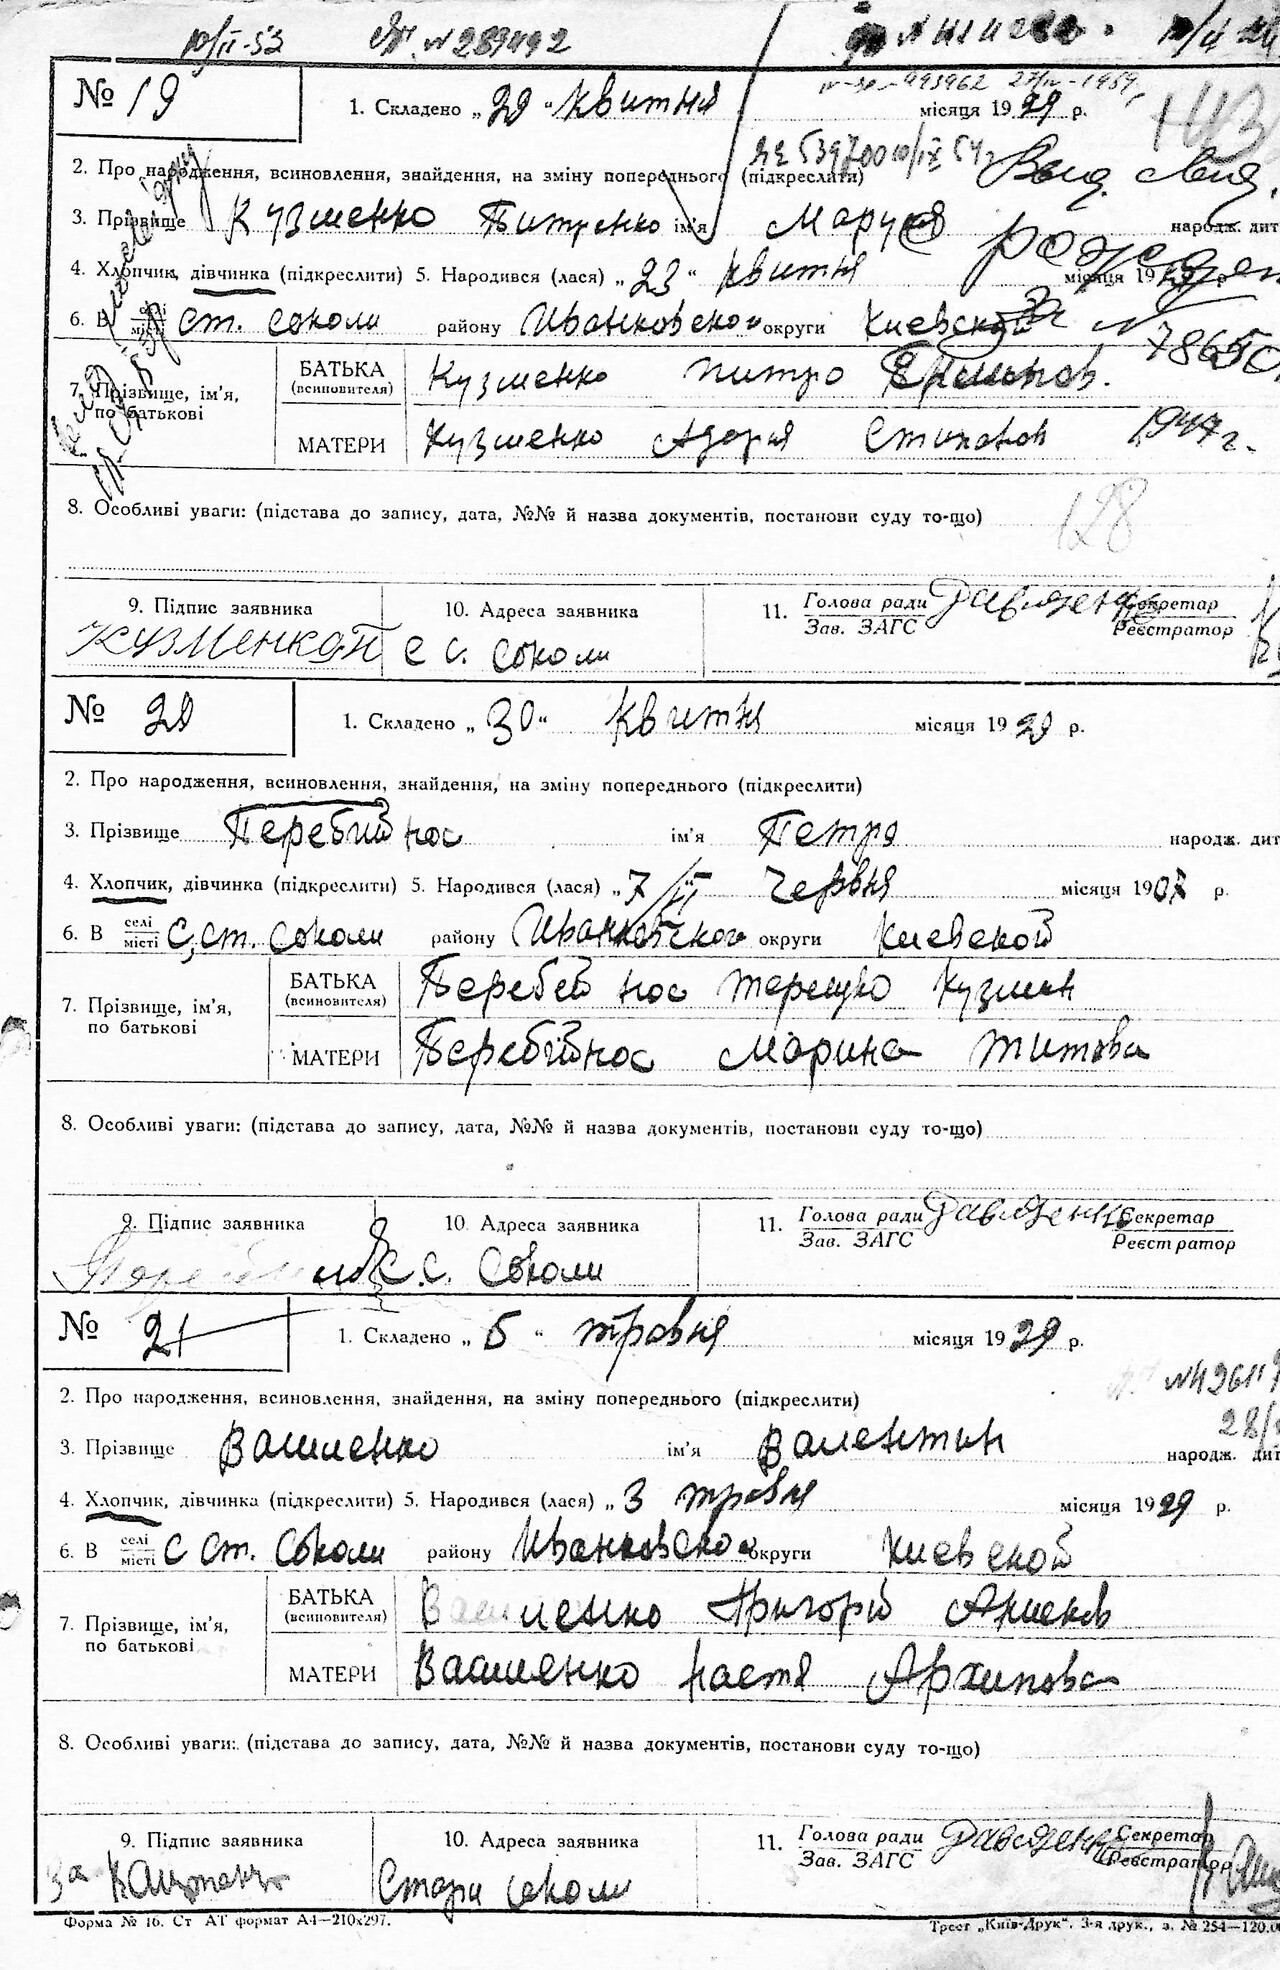 10/II-53 № 289492
№ 19
1. Складено „ 29 “ квитня місяця 1929 р.
2. Про народження, всиновлення, знайдення, на зміну попереднього (підкреслити)
Выд. свид.
3. Прізвище Кузменко Питренко ім'я Маруся народж. дит
рожден
4. Хлопчик, дівчинка (підкреслити) 5. Народився (лася) „ 23 “ квитня місяця 19 р
6. В селі місті ст. соколи району Иванковского округи Киевской
7. Прізвище, ім'я, по батькові
БАТЬКА (всиновителя) Кузменко питро
МАТЕРИ Кузменко Степанов 1947 г.
8. Особливі уваги: (підстава до запису, дата, №№ й назва документів, постанови суду то-що)
128
9. Підпис заявника 10. Адреса заявника 11. Голова ради Секретар
Зав. ЗАГС Реєстратор
Кузменко П с с. соколи
№ 20
1. Складено „ 30 “ квитня місяця 1929 р.
2. Про народження, всиновлення, знайдення, на зміну попереднього (підкреслити)
3. Прізвище Перебийнос ім'я Петро народж. дит
4. Хлопчик, дівчинка (підкреслити) 5. Народився (лася) „ 7 “ червня місяця 1907 р.
6. В селі місті с, ст. соколи району Иванковского округи Киевской
7. Прізвище, ім'я, по батькові
БАТЬКА (всиновителя) Перебей нос терешко Кузмин
МАТЕРИ Перебийнос Марина титова
8. Особливі уваги: (підстава до запису, дата, №№ й назва документів, постанови суду то-що)
9. Підпис заявника 10. Адреса заявника 11. Голова ради Секретар
Зав. ЗАГС Реєстратор
с. Соколи
№ 21
1. Складено „ 5 “ травня місяця 1929 р.
2. Про народження, всиновлення, знайдення, на зміну попереднього (підкреслити)
3. Прізвище Вашленко ім'я Валентин народж. дит
4. Хлопчик, дівчинка (підкреслити) 5. Народився (лася) „ 3 травня місяця 1929 р.
6. В селі місті с ст. Соколи району Иванковского округи Киевской
7. Прізвище, ім'я, по батькові
БАТЬКА (всиновителя) Григорій
МАТЕРИ Вашленко настя Архипова
8. Особливі уваги: (підстава до запису, дата, №№ й назва документів, постанови суду то-що)
9. Підпис заявника 10. Адреса заявника 11. Голова ради Секретар
Зав. ЗАГС Реєстратор
за Стари соколи
Форма № 16. Ст АТ формат А4—210х297. Трест „Київ-Друк“. 3-я друк., з. № 254—120.0